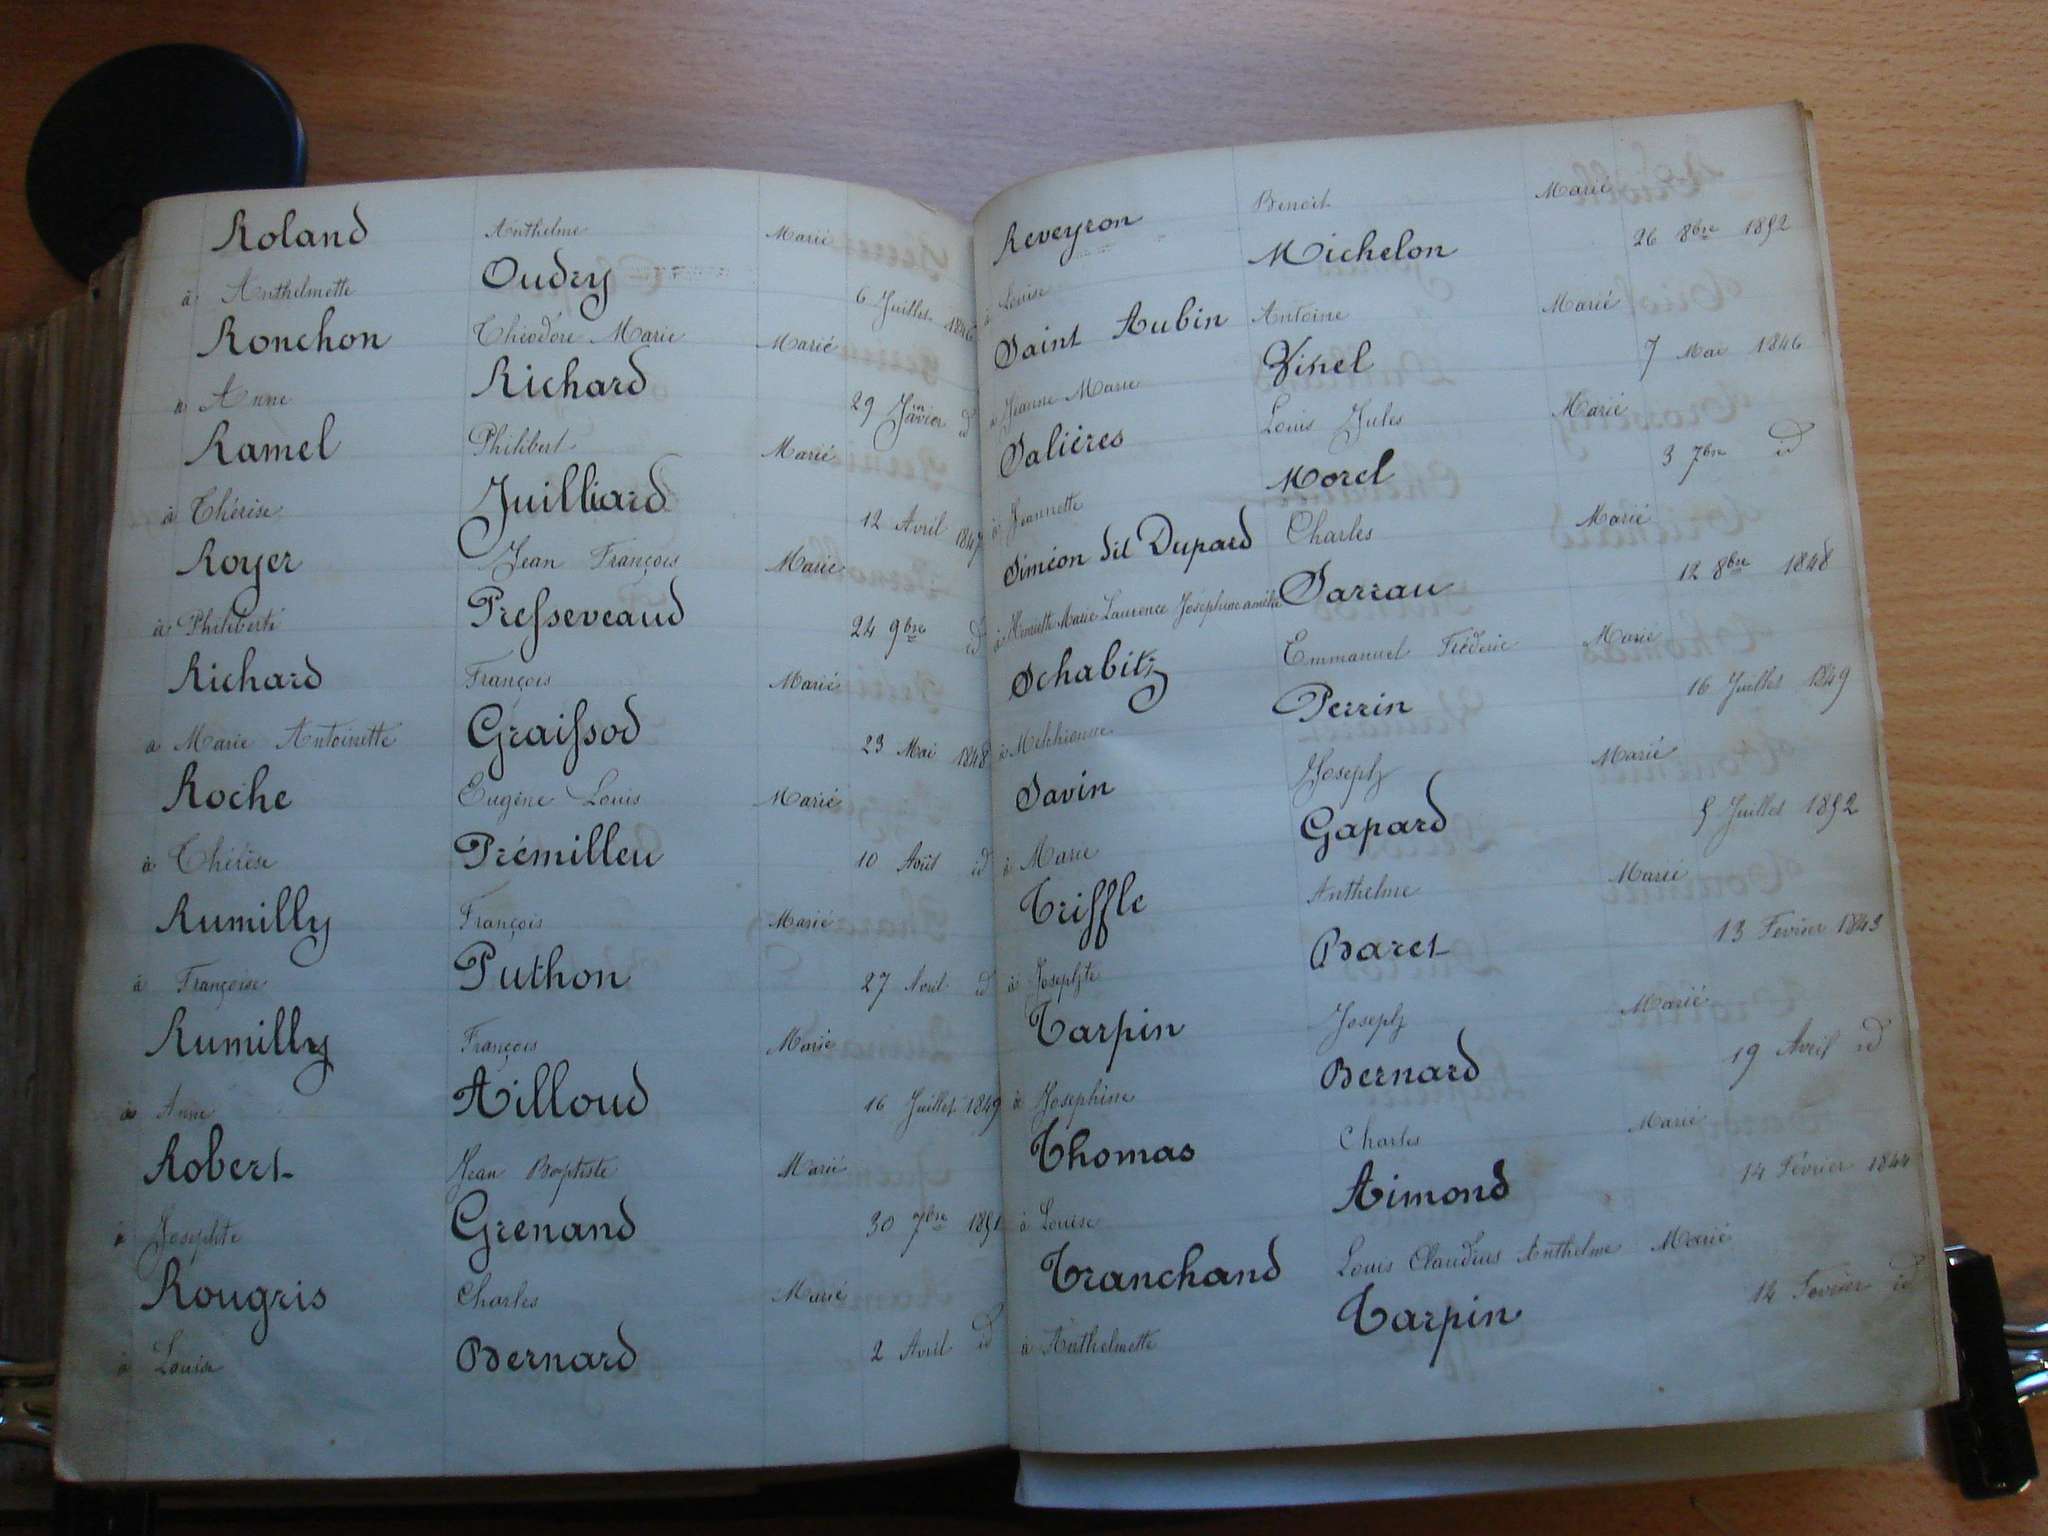 Roland Anthelme Marié
à Anthelmette Oudry 6 Juillet 1846
Ronchon Théodore Marie Marié
à Anne Richard 29 Janvier id
Ramel Philibert Marié
à Thérèse Juilliard 12 Avril 1847
Royer Jean François Marié
à Philiberte Presseveaud 24 9bre id
Richard François Marié
à Marie Antoinette Graissod 23 Mai 1848
Roche Eugène Louis Marié
à Thérèse Prémilleu 10 Août id
Rumilly François Marié
à Françoise Puthon 27 Avril id
Rumilly François Marié
à Anne Ailloud 16 Juillet 1849
Robert Jean Baptiste Marié
à Josephte Grenand 30 7bre 1851
Rougris Charles Marié
à Louise Bernard 2 Avril id
Reveyron Benoit Marié
à Louise Michelon 26 8bre 1852
Saint Aubin Antoine Marié
à Jeanne Marie Vinel 7 Mai 1846
Salières Louis Jules Marié
à Jeannette Morel 3 7bre id
Siméon dit Dupard Charles Marié
à Marie Laurence Joséphine Sarrau 12 8bre 1848
Schabitz Emmanuel Fréderic Marié
à Perrin 16 Juillet 1849
Savin Joseph Marié
à Marie Gapard 5 Juillet 1852
Triffle Anthelme Marié
à Josephte Baret 13 Fevrier 1843
Tarpin Joseph Marié
à Josephine Bernard 19 Avril id
Thomas Charles Marié
à Louise Aimond 14 Février 1844
Tranchand Louis Claudius Anthelme Marié
à Anthelmette Tarpin 14 Fevrier id